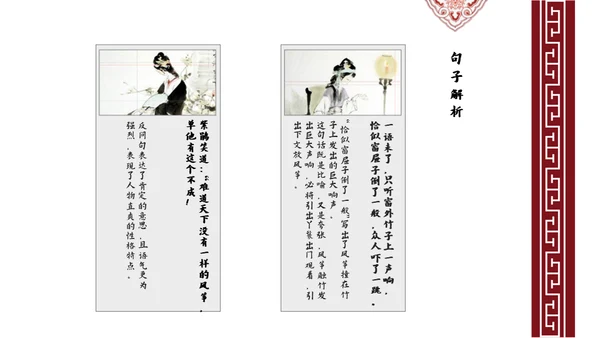 句子解析
一语未了，只听窗外竹子上一声响，
恰似窗屉子倒了一般，众人吓了一跳。
“恰似窗屉子倒了一般”写出了风筝挂在竹
子上发出的巨大响声。
这句话既是比喻，又是夸张，风筝触竹发
出巨大声响，必将引出丫鬟出门观看，引
出下文放风筝。
紫鹃笑道：“难道天下没有一样的风筝，
单他有这个不成！
反问句表达了肯定的意思，且语气更为
强烈，表现了人物直爽的性格特点。